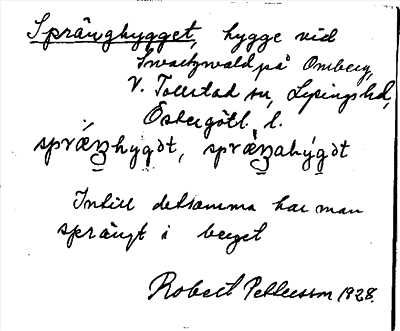 Språnghygget, hygge vid
Svartzwald på Omberg,
V. Tollstad sn, Lysings hd,
Östergötl. l.
språŋhygət, språŋahýgət
Intill detsamma har man
sprängt i berget
Robert Pettersson 1928.